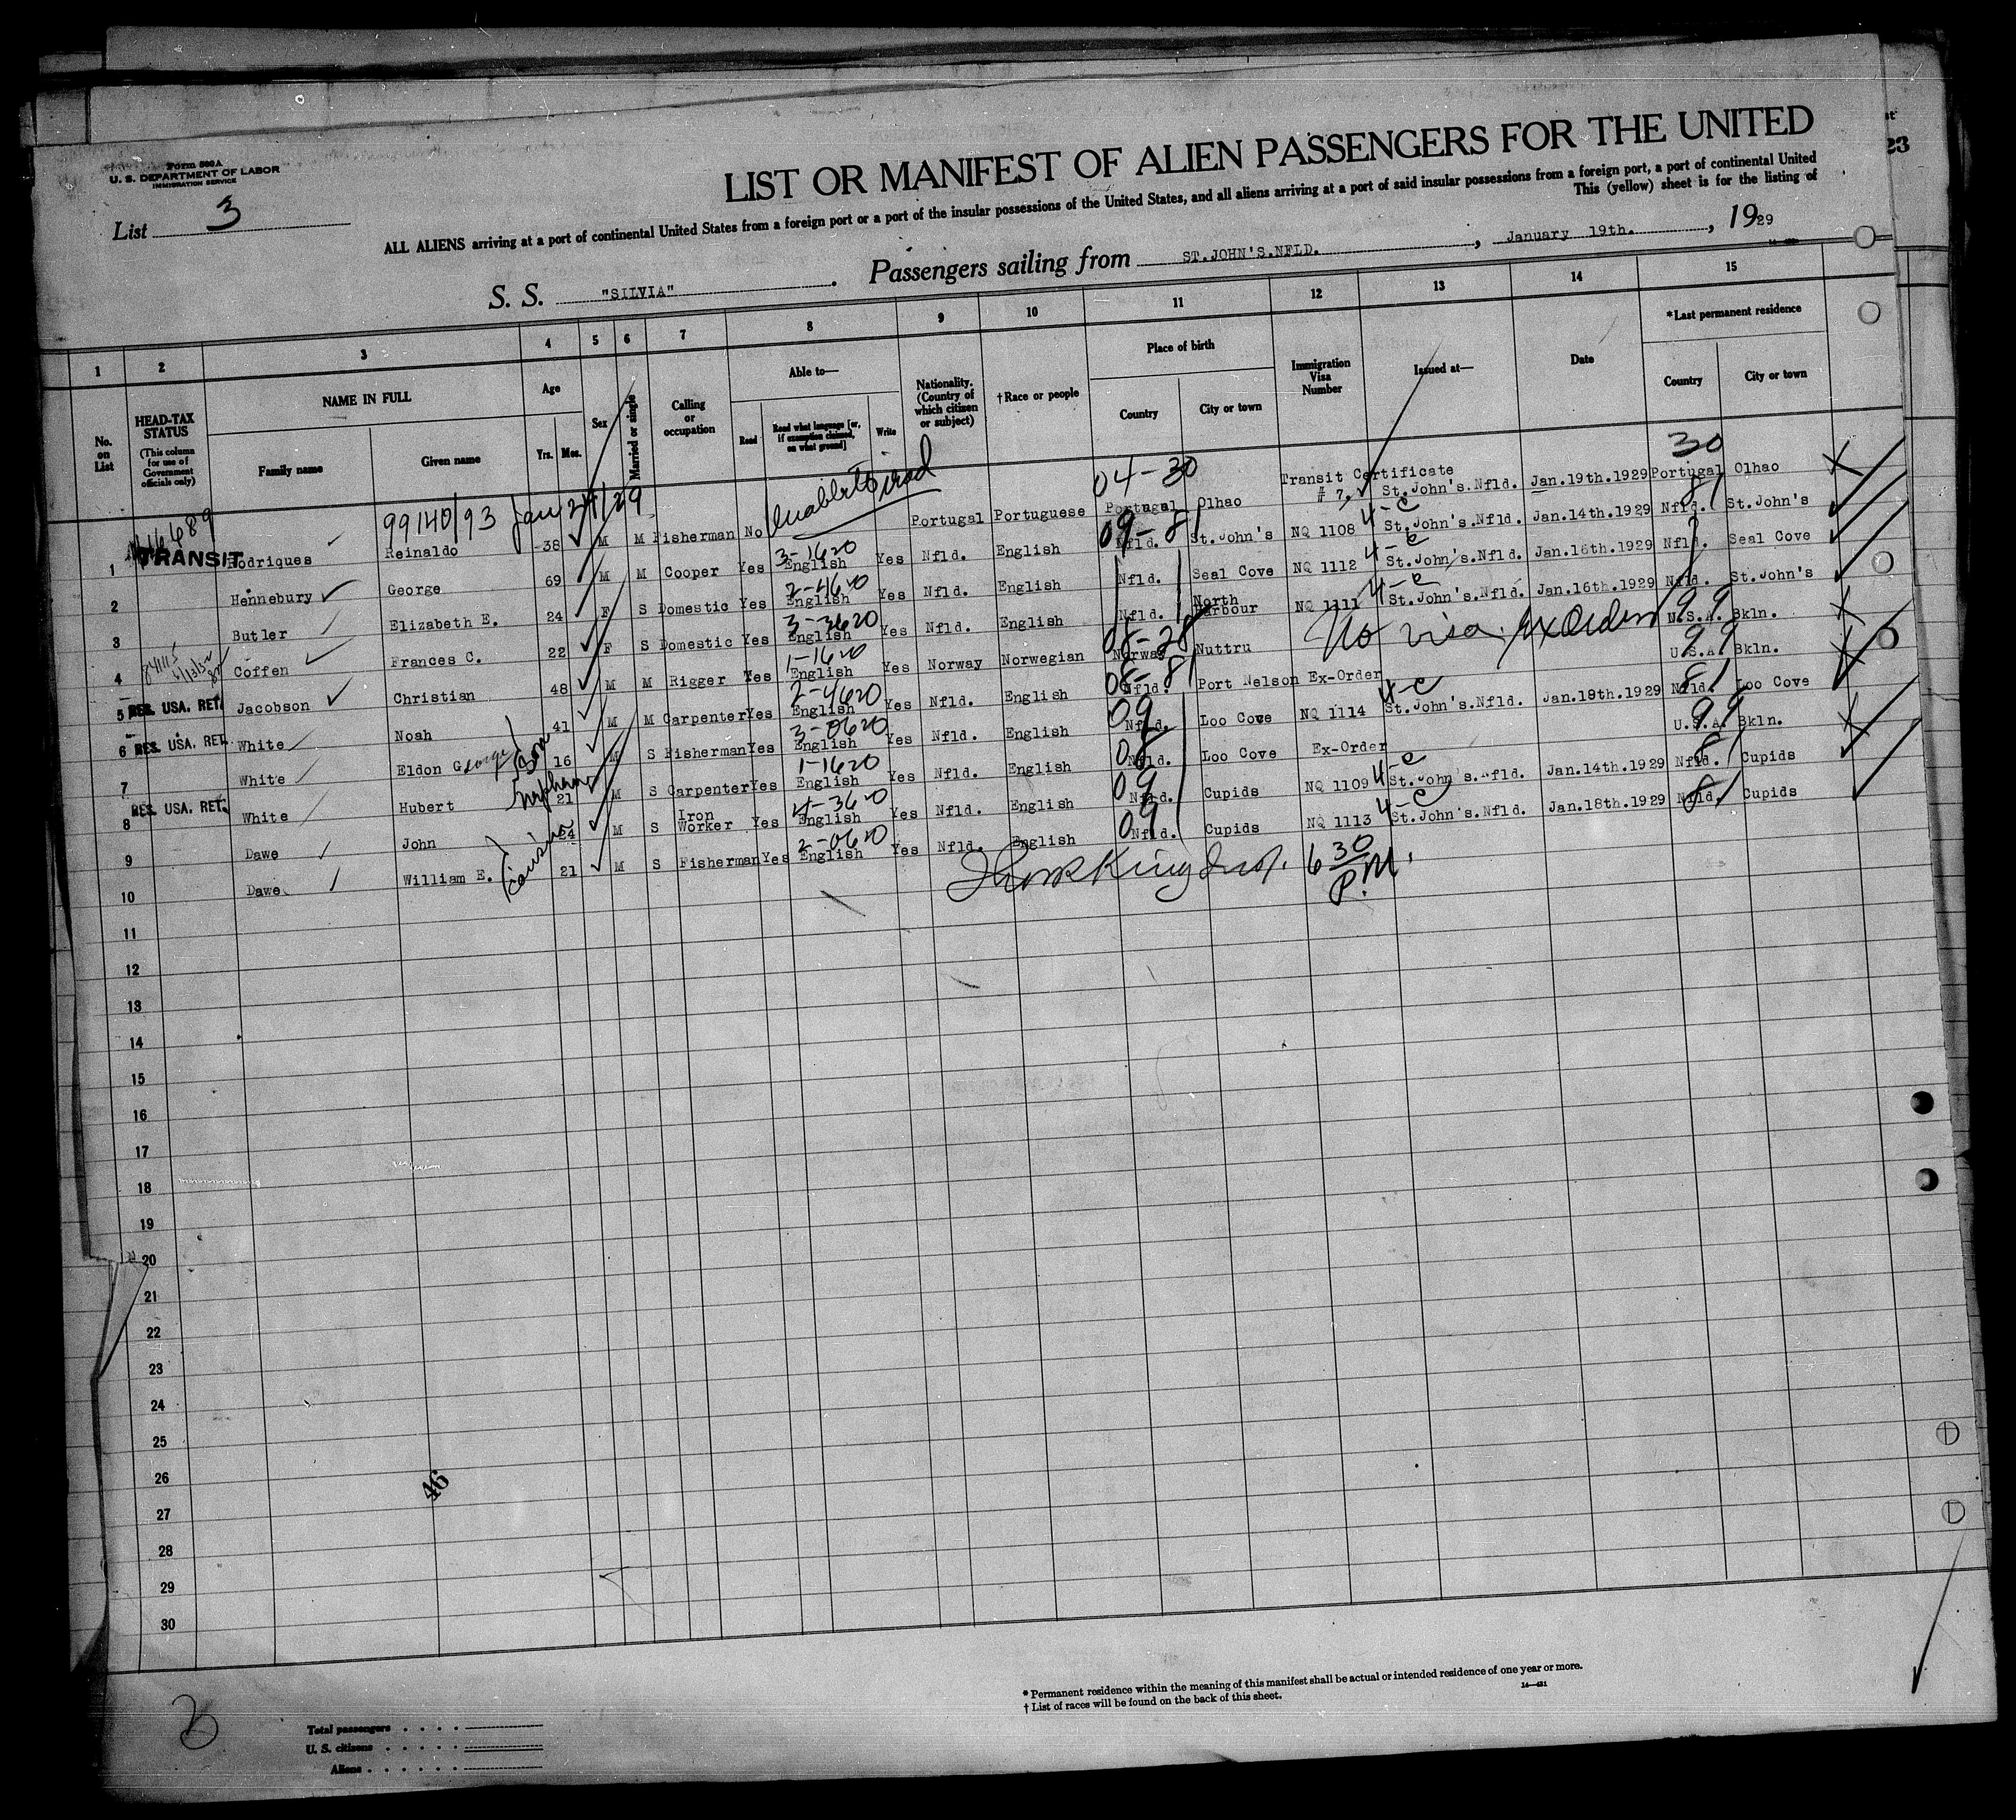 Form 500A
U. S. DEPARTMENT OF LABOR
IMMIGRATION SERVICE
List 3
LIST OR MANIFEST OF ALIEN PASSENGERS FOR THE UNITED
ALL ALIENS arriving at a port of continental United States from a foreign port or a port of the insular possessions of the United States, and all aliens arriving at a port of said insular possessions from a foreign port, a port of continental United
This (yellow) sheet is for the listing of
S. S. "SILVIA". Passengers sailing from ST.JOHN'S.NFLD., January 19th., 1929
1 2 3 4 5 6 7 8 9 10 11 12 13 14 15
No. on List
HEAD-TAX STATUS (This column for use of Government officials only)
NAME IN FULL
Family name
Given name
Age
Yrs. Mos.
Sex
Married or single
Calling or occupation
Able to—
Read
Read what language [or, if exemption claimed, on what ground]
Write
Nationality. (Country of which citizen or subject)
† Race or people
Place of birth
Country
City or town
Immigration Visa Number
Issued at—
Date
*Last permanent residence
Country
City or town
99140/93 Jan 21/29
04-30
30
1 TRANSIT Rodriques Reinaldo 38 M M Fisherman No Portugal Portuguese Portugal Olhao Transit Certificate # 7. St.John's.Nfld. Jan.19th.1929 Portugal Olhao
09-81 3-1620 4-C 81
2 Hennebury George 69 M M Cooper Yes English Yes Nfld. English Nfld. St.John's NQ 1108 St.John's.Nfld. Jan.14th.1929 Nfld. St.John's
2-4620 4-C
3 Butler Elizabeth E. 24 F S Domestic Yes English Yes Nfld. English Nfld. Seal Cove NQ 1112 St.John's.Nfld. Jan.16th.1929 Nfld. Seal Cove
3-3620 4-C
4 Coffen Frances C. 22 F S Domestic Yes English Yes Nfld. English Nfld. North Harbour NQ 1111 St.John's.Nfld. Jan.16th.1929 Nfld. St.John's
1-1620 08-28 99
5 RES. USA. RET. Jacobson Christian 48 M M Rigger Yes English Yes Norway Norwegian Norway Nuttru No visa. Ex Order U.S.A. Bkln.
2-4620 08-81 99
6 RES. USA. RET. White Noah 41 M M Carpenter Yes English Yes Nfld. English Nfld. Port Nelson Ex-Order U.S.A. Bkln.
3-0620 09 4-C 81
7 White Eldon George 16 M S Fisherman Yes English Yes Nfld. English Nfld. Loo Cove NQ 1114 St.John's.Nfld. Jan.18th.1929 Nfld. Loo Cove
1-1620 08 99
8 RES. USA. RET. White Hubert 21 M S Carpenter Yes English Yes Nfld. English Nfld. Loo Cove Ex-Order U.S.A. Bkln.
4-3620 09 4-C 81
9 Dawe John 24 M S Iron Worker Yes English Yes Nfld. English Nfld. Cupids NQ 1109 St.John's.Nfld. Jan.14th.1929 Nfld. Cupids
2-0620 09 4-C 81
10 Dawe William E. 21 M S Fisherman Yes English Yes Nfld. English Nfld. Cupids NQ 1113 St.John's.Nfld. Jan.18th.1929 Nfld. Cupids
Cousins
King Insp. 6 30 P.M.
11
12
13
14
15
16
17
18
19
20
21
22
23
24
25
26
27
28
29
30
46
* Permanent residence within the meaning of this manifest shall be actual or intended residence of one year or more.
† List of races will be found on the back of this sheet.
Total passengers
U. S. citizens
Aliens
23